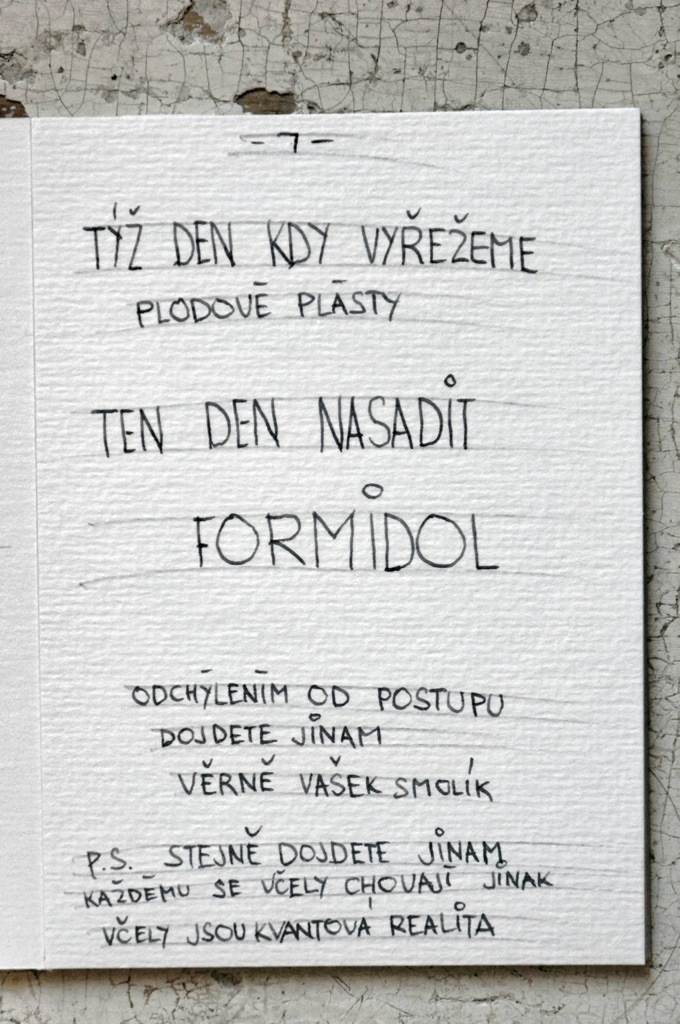 - 7 -
TÝŽ DEN KDY VYŘEŽEME
PLODOVÉ PLÁSTY
TEN DEN NASADIT
FORMIDOL
ODCHÝLENÍM OD POSTUPU
DOJDETE JINAM
VĚRNĚ VAŠEK SMOLÍK
P.S. STEJNĚ DOJDETE JINAM
KAŽDÉMU SE VČELY CHOVAJÍ JINAK
VČELY JSOU KVANTOVÁ REALITA